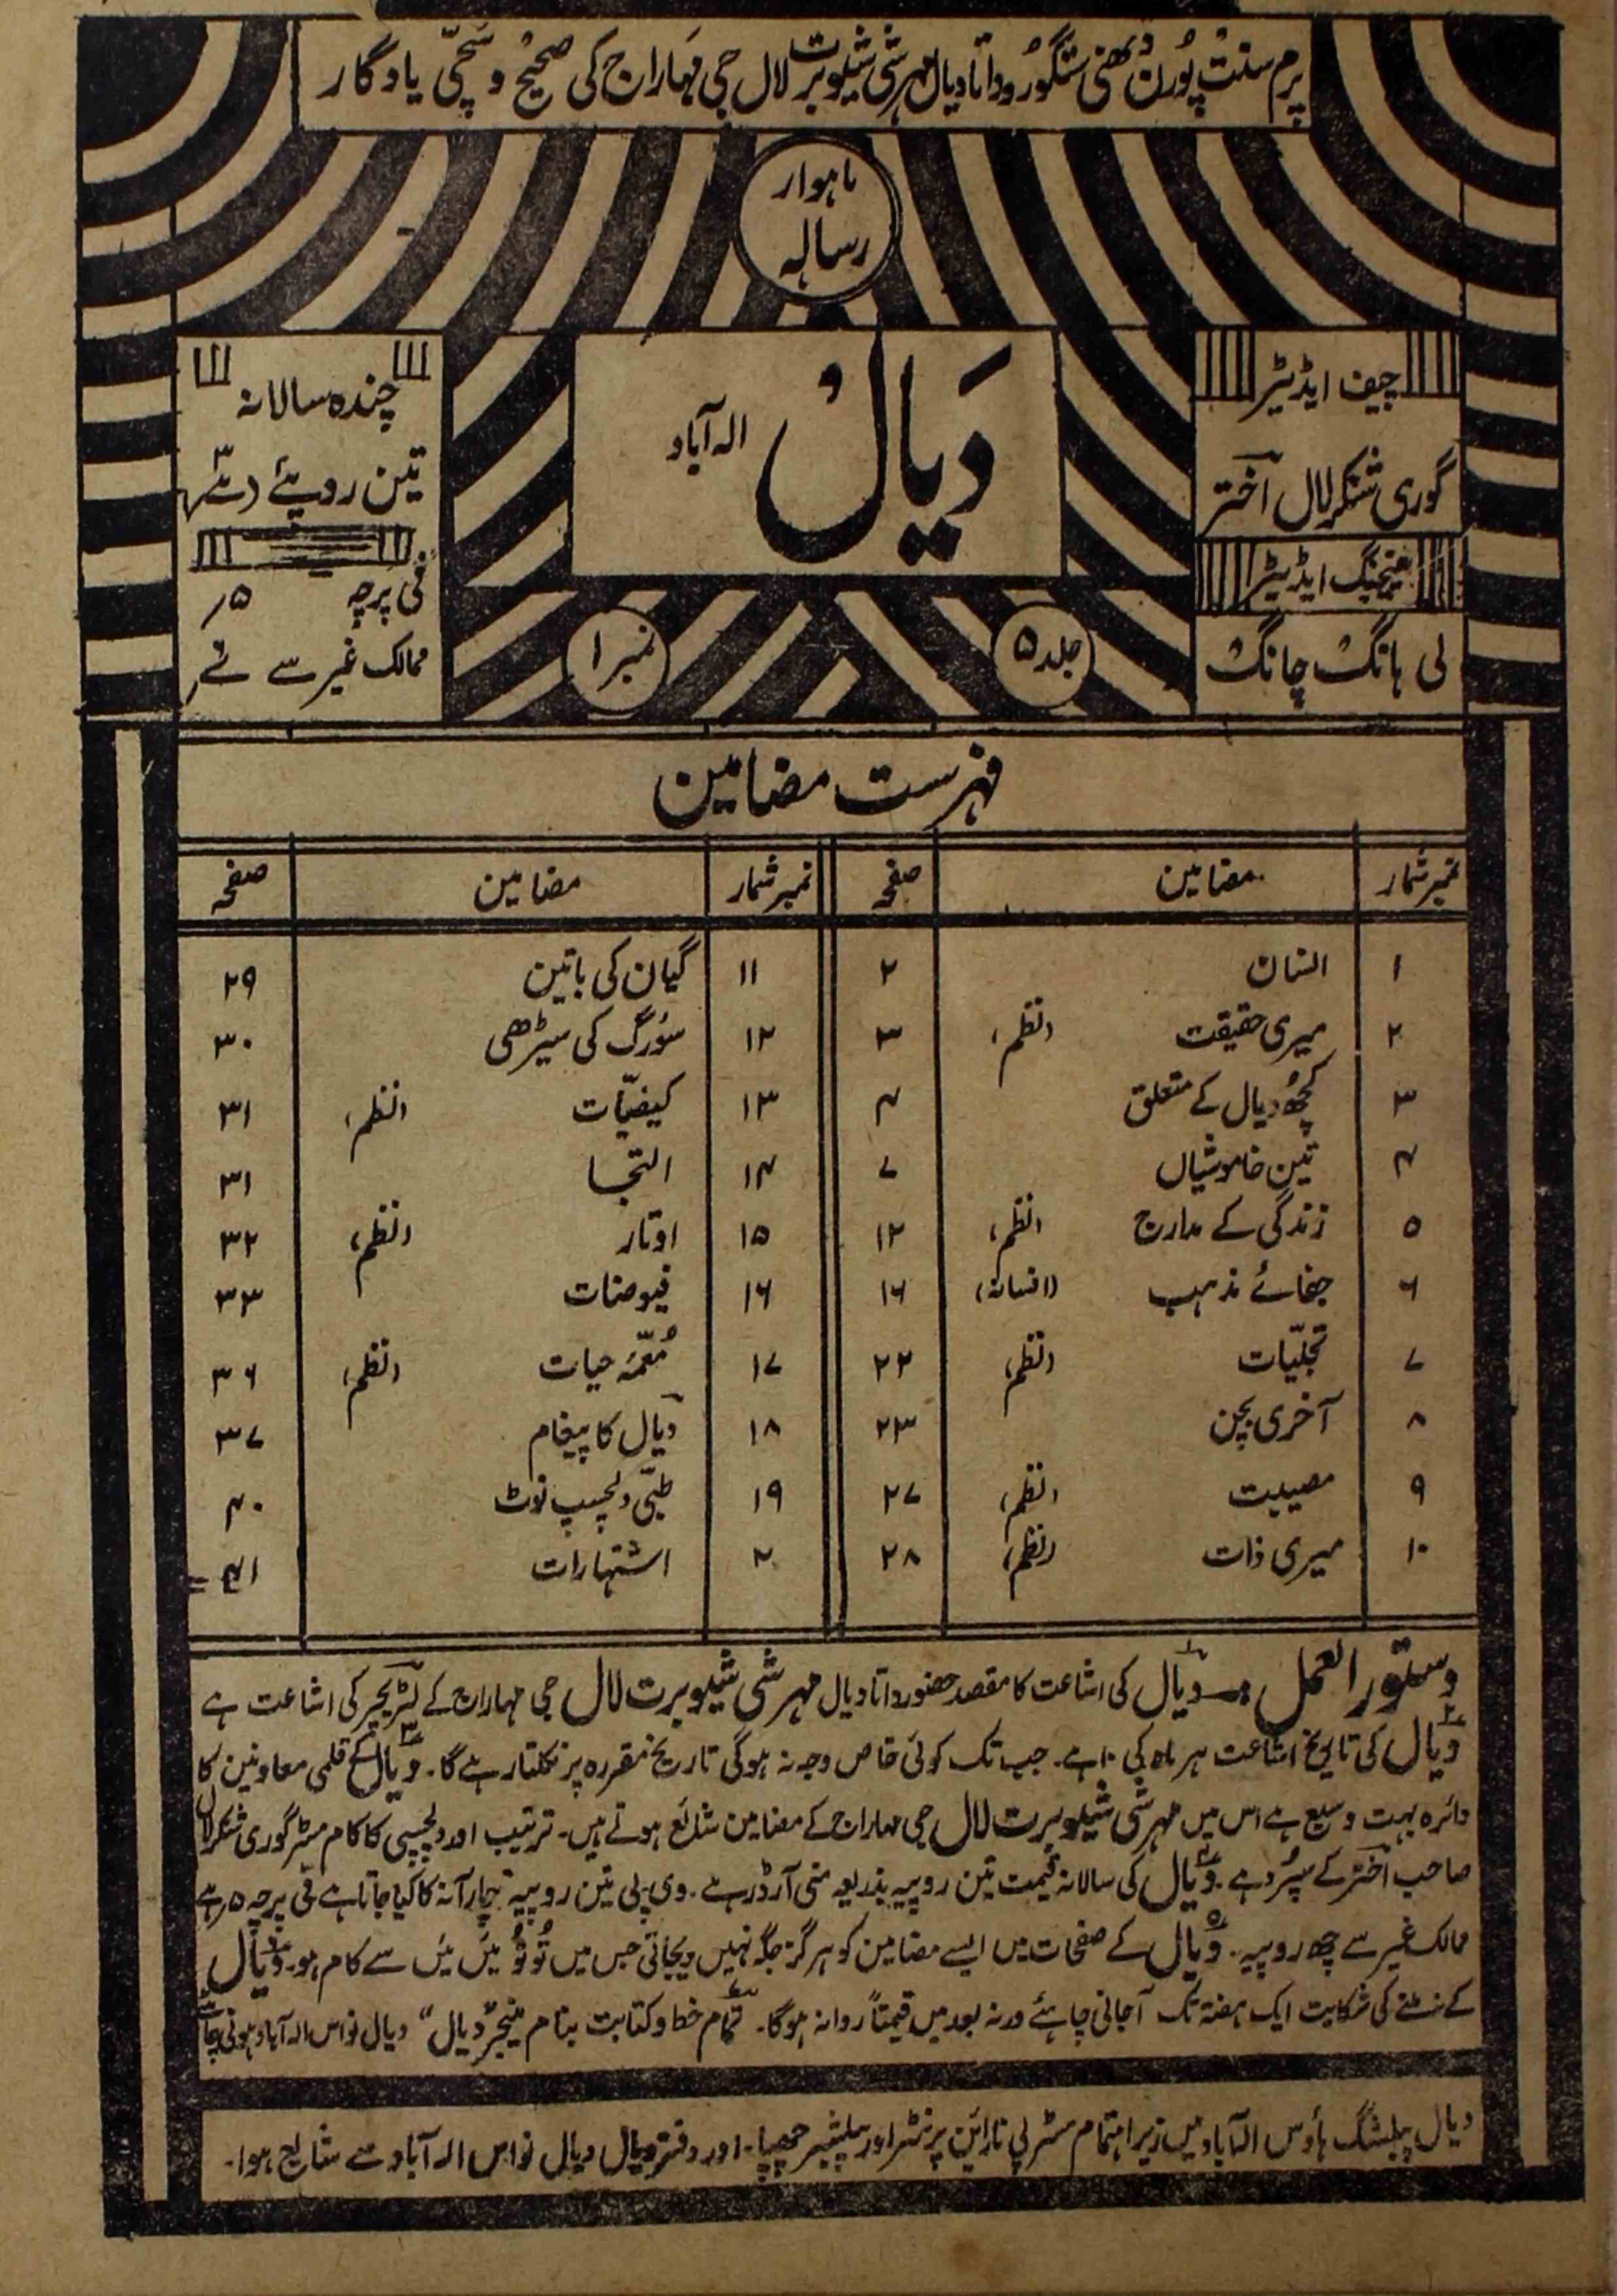 پرم سنت پورن دھنی ستگورو داتا دیال مہرشی شیوبرت لال جی مہاراج کی صحیح و سچی یادگار
ماہوار
رسالہ
چیف ایڈیٹر
گوری شنکر لال اختر
منیجنگ ایڈیٹر
لی ہانگ چانگ
دَیالُ
الہ آباد
چندہ سالانہ
تین روپئے
فی پرچہ ۵؍
ممالک غیر سے
جلد ۵
نمبر ۱
فہرست مضامین
نمبر شمار مضامین صفحہ نمبر شمار مضامین صفحہ
۱ انسان ۲ ۱۱ گیان کی باتیں ۲۹
۲ میری حقیقت (نظم) ۳ ۱۲ سورگ کی سیڑھی ۳۰
۳ کچھ دیال کے متعلق ۴ ۱۳ کیفیّات (نظم) ۳۱
۴ تین خاموشیاں ۷ ۱۴ التجا ۳۱
۵ زندگی کے مدارج (نظم) ۱۲ ۱۵ اوتار (نظم) ۳۲
۶ جفائے مذہب (افسانہ) ۱۶ ۱۶ فیوضات ۳۳
۷ تجلّیات (نظم) ۲۲ ۱۷ مُعمّہ حیات (نظم) ۳۶
۸ آخری بچن ۲۳ ۱۸ دیال کا پیغام ۳۷
۹ مصیبت (نظم) ۲۷ ۱۹ طبّی دلچسپ نوٹ ۴۰
۱۰ میری ذات (نظم) ۲۸ ۲۰ اشتہارات ۴۱
دستور العمل ۱ دیال کی اشاعت کا مقصد حضور داتا دیال مہرشی شیوبرت لال جی مہاراج کے لٹریچر کی اشاعت ہے
۲ دیال کی تاریخ اشاعت ہر ماہ کی ۱۰ ہے۔ جب تک کوئی خاص وجہ نہ ہوگی تاریخ مقررہ پر نکلتا رہے گا۔ ۳ دیال کے قلمی معاونین کا
دائرہ بہت وسیع ہے اس میں مہرشی شیوبرت لال جی مہاراج کے مضامین شائع ہوتے ہیں۔ ترتیب اور دلچسپی کا کام مسٹر گوری شنکر لال
صاحب اختر کے سپرد ہے۔ ۴ دیال کی سالانہ قیمت تین روپیہ بذریعہ منی آرڈر ہے۔ وی۔پی تین روپیہ چار آنہ کا کیا جاتا ہے فی پرچہ ۵؍ ہے
ممالک غیر سے چھ روپیہ۔ ۵ دیال کے صفحات میں ایسے مضامین کو ہرگز جگہ نہیں دیجاتی جس میں تُو تُو مَیں مَیں سے کام ہو۔ ۶ دیال
کے نہ ملنے کی شکایت ایک ہفتہ تک آجانی چاہئے ورنہ بعد میں قیمتاً روانہ ہوگا۔ ۷ تمام خط و کتابت بنام منیجر "دیال" دیال نواس الہ آباد ہونی چاہئے
دیال پبلشنگ ہاؤس الہ آباد میں زیر اہتمام مسٹر لی نارائین پرنٹر اور پبلشیر چھپا۔ اور دفتر دیال دیال نواس الہ آباد سے شائع ہوا۔